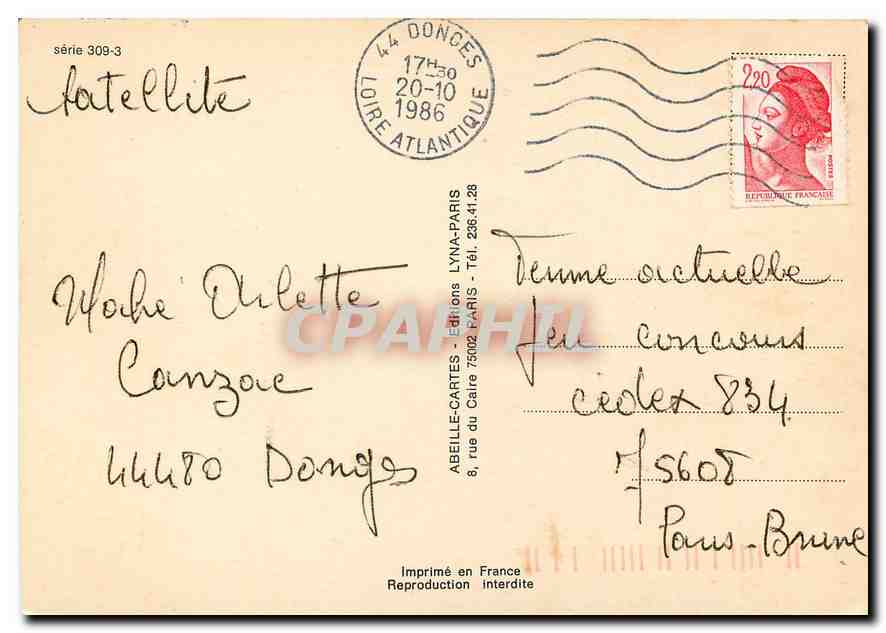 série 309-3
Satellite
44 DONGES
17H30
20-10
1986
LOIRE ATLANTIQUE
2,20
POSTES
REPUBLIQUE FRANÇAISE
Mahé Arlette
Canzac
44480 Donges
ABEILLE-CARTES - Editions LYNA-PARIS
8, rue du Caire 75002 PARIS - Tél. 236.41.28
Femme actuelle
Jeu concours
cédex 834
75608
Paris-Brune
CPAPHIL
Imprimé en France
Reproduction interdite